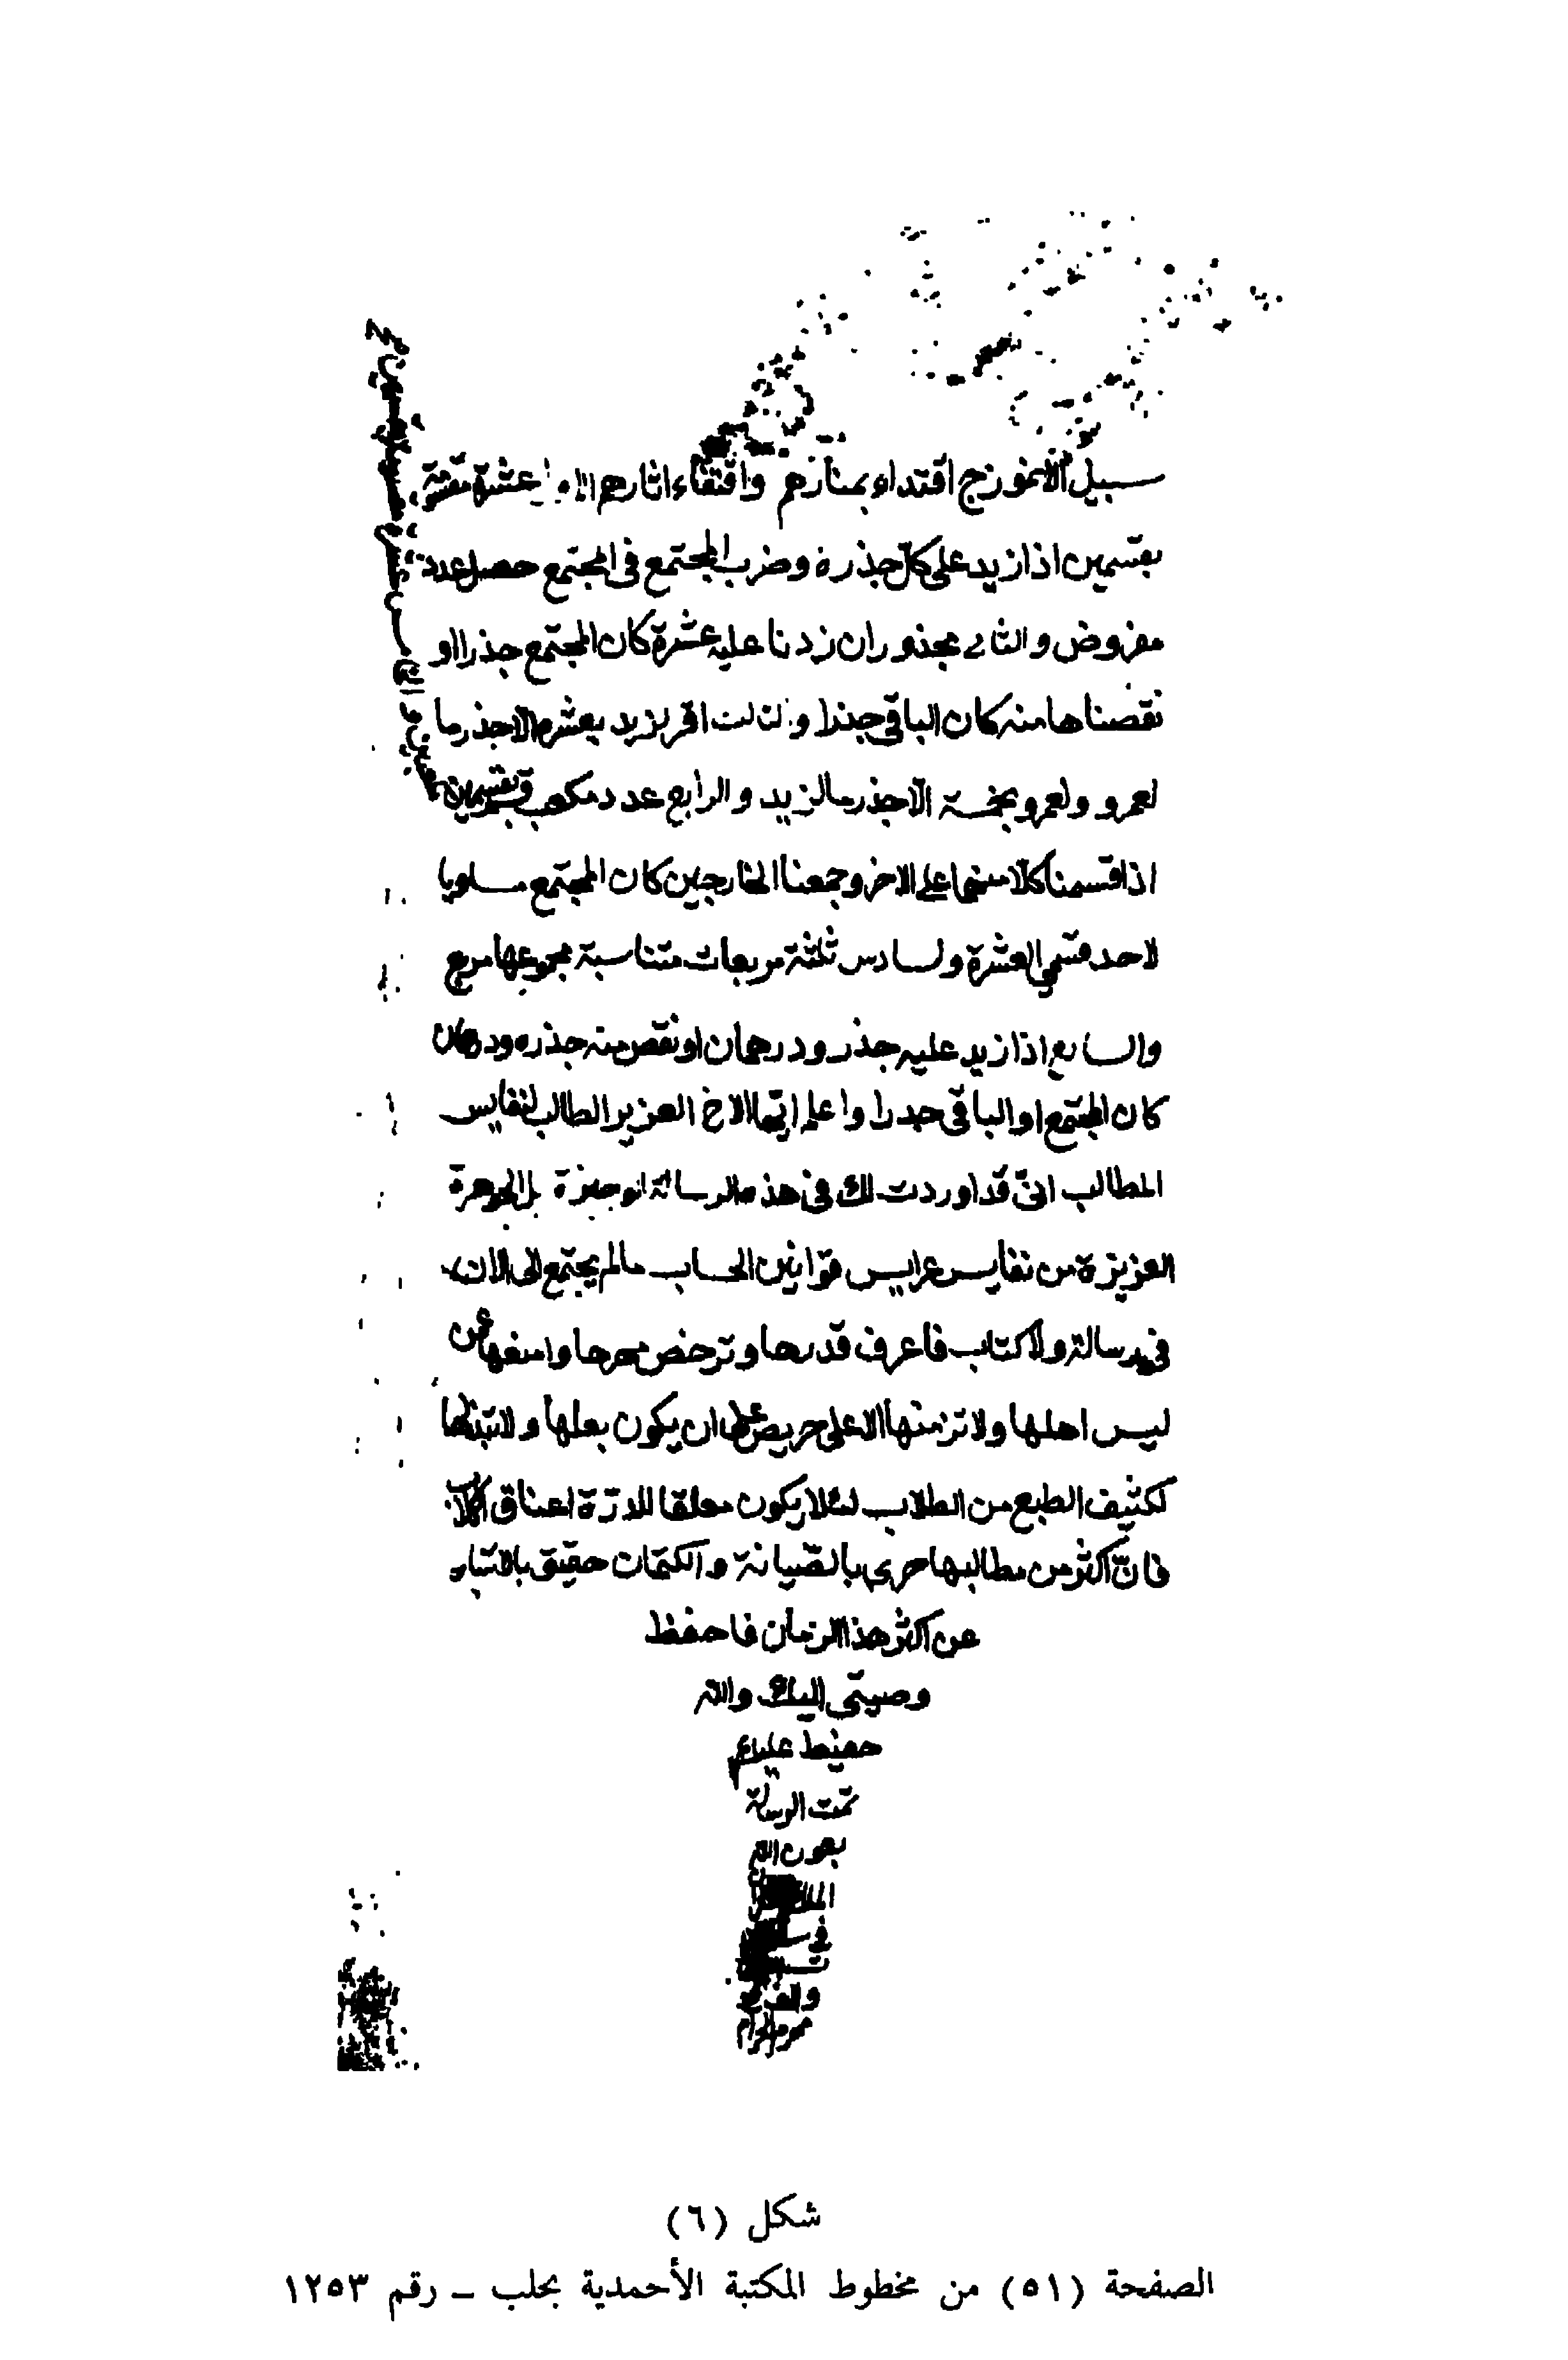 سبيل الانموزج اقتداء بمنارهم واقتفاء اثارهم الاول عشرة مقسومة
بقسمين اذا زيد على كل جذره وضرب المجتمع فى المجتمع حصل عدد
مفروض والثانى مجذور ان زدنا عليه عشرة كان المجتمع جذرا او
نقصناها منه كان الباقى جذرا والثالث اقر لزيد بعشرة الا جذر ما
لعمرو ولعمرو بخمسة الا جذر ما لزيد والرابع عدد مكعب قسم بقسمين
اذا قسمنا كلا منهما على الاخر وجمعنا الخارجين كان المجتمع مساويا
لاحد قسمى العشرة والسادس ثلثة مربعات متناسبة مجموعها مربع
والسابع اذا زيد عليه جذره ودرهمان او نقص منه جذره ودرهمان
كان المجتمع او الباقى جدرا واعلم ايها الاخ العزيز الطالب لنفايس
المطالب انى قد اوردت لك فى هذه الرسالة الوجيزة بل الجوهرة
العزيزة من نفايس عرايس قوانين الحساب مالم يجتمع الى الان
فى رسالة ولا كتاب فاعرف قدرها ولا ترخص مهرها وامنعها عمن
ليس اهلها ولا تزفنها الا على حريص على ان يكون بعلها ولا تبذلها
لكثيف الطبع من الطلاب لئلا يكون معلقا للدرة اعناق الكلاب
فان اكثر من مطالبها حرى بالصيانة والكتمان حقيق بالاستتار
عن اكثر هذا الزمان فاحفظ
وصيتى اليك والله
حفيظ عليك
تمت الرسالة
بعون الله
الملك
فى
والف
محرم الحرام
شكل (٦)
الصفحة (٥١) من مخطوط المكتبة الأحمدية بحلب ـ رقم ١٢٥٣